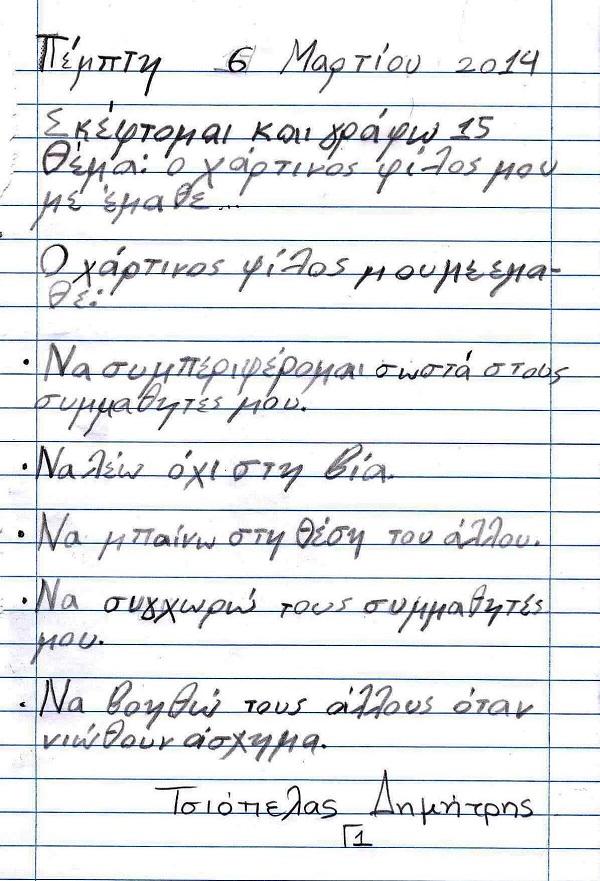 Πέμπτη 6 Μαρτίου 2014
Σκέφτομαι και γράφω 15
Θέμα: ο χάρτινος φίλος μου
με έμαθε...
Ο χάρτινος φίλος μου με εμα-
θε:
· Να συμπεριφέρομαι σωστά στους
συμμαθητες μου.
· Να λέω όχι στη βία.
· Να μπαίνω στη θέση του άλλου.
· Να συγχωρώ τους συμμαθητές
μου.
· Να βοηθώ τους άλλους όταν
νιώθουν άσχημα.
Τσιόπελας Δημήτρης
Γ1